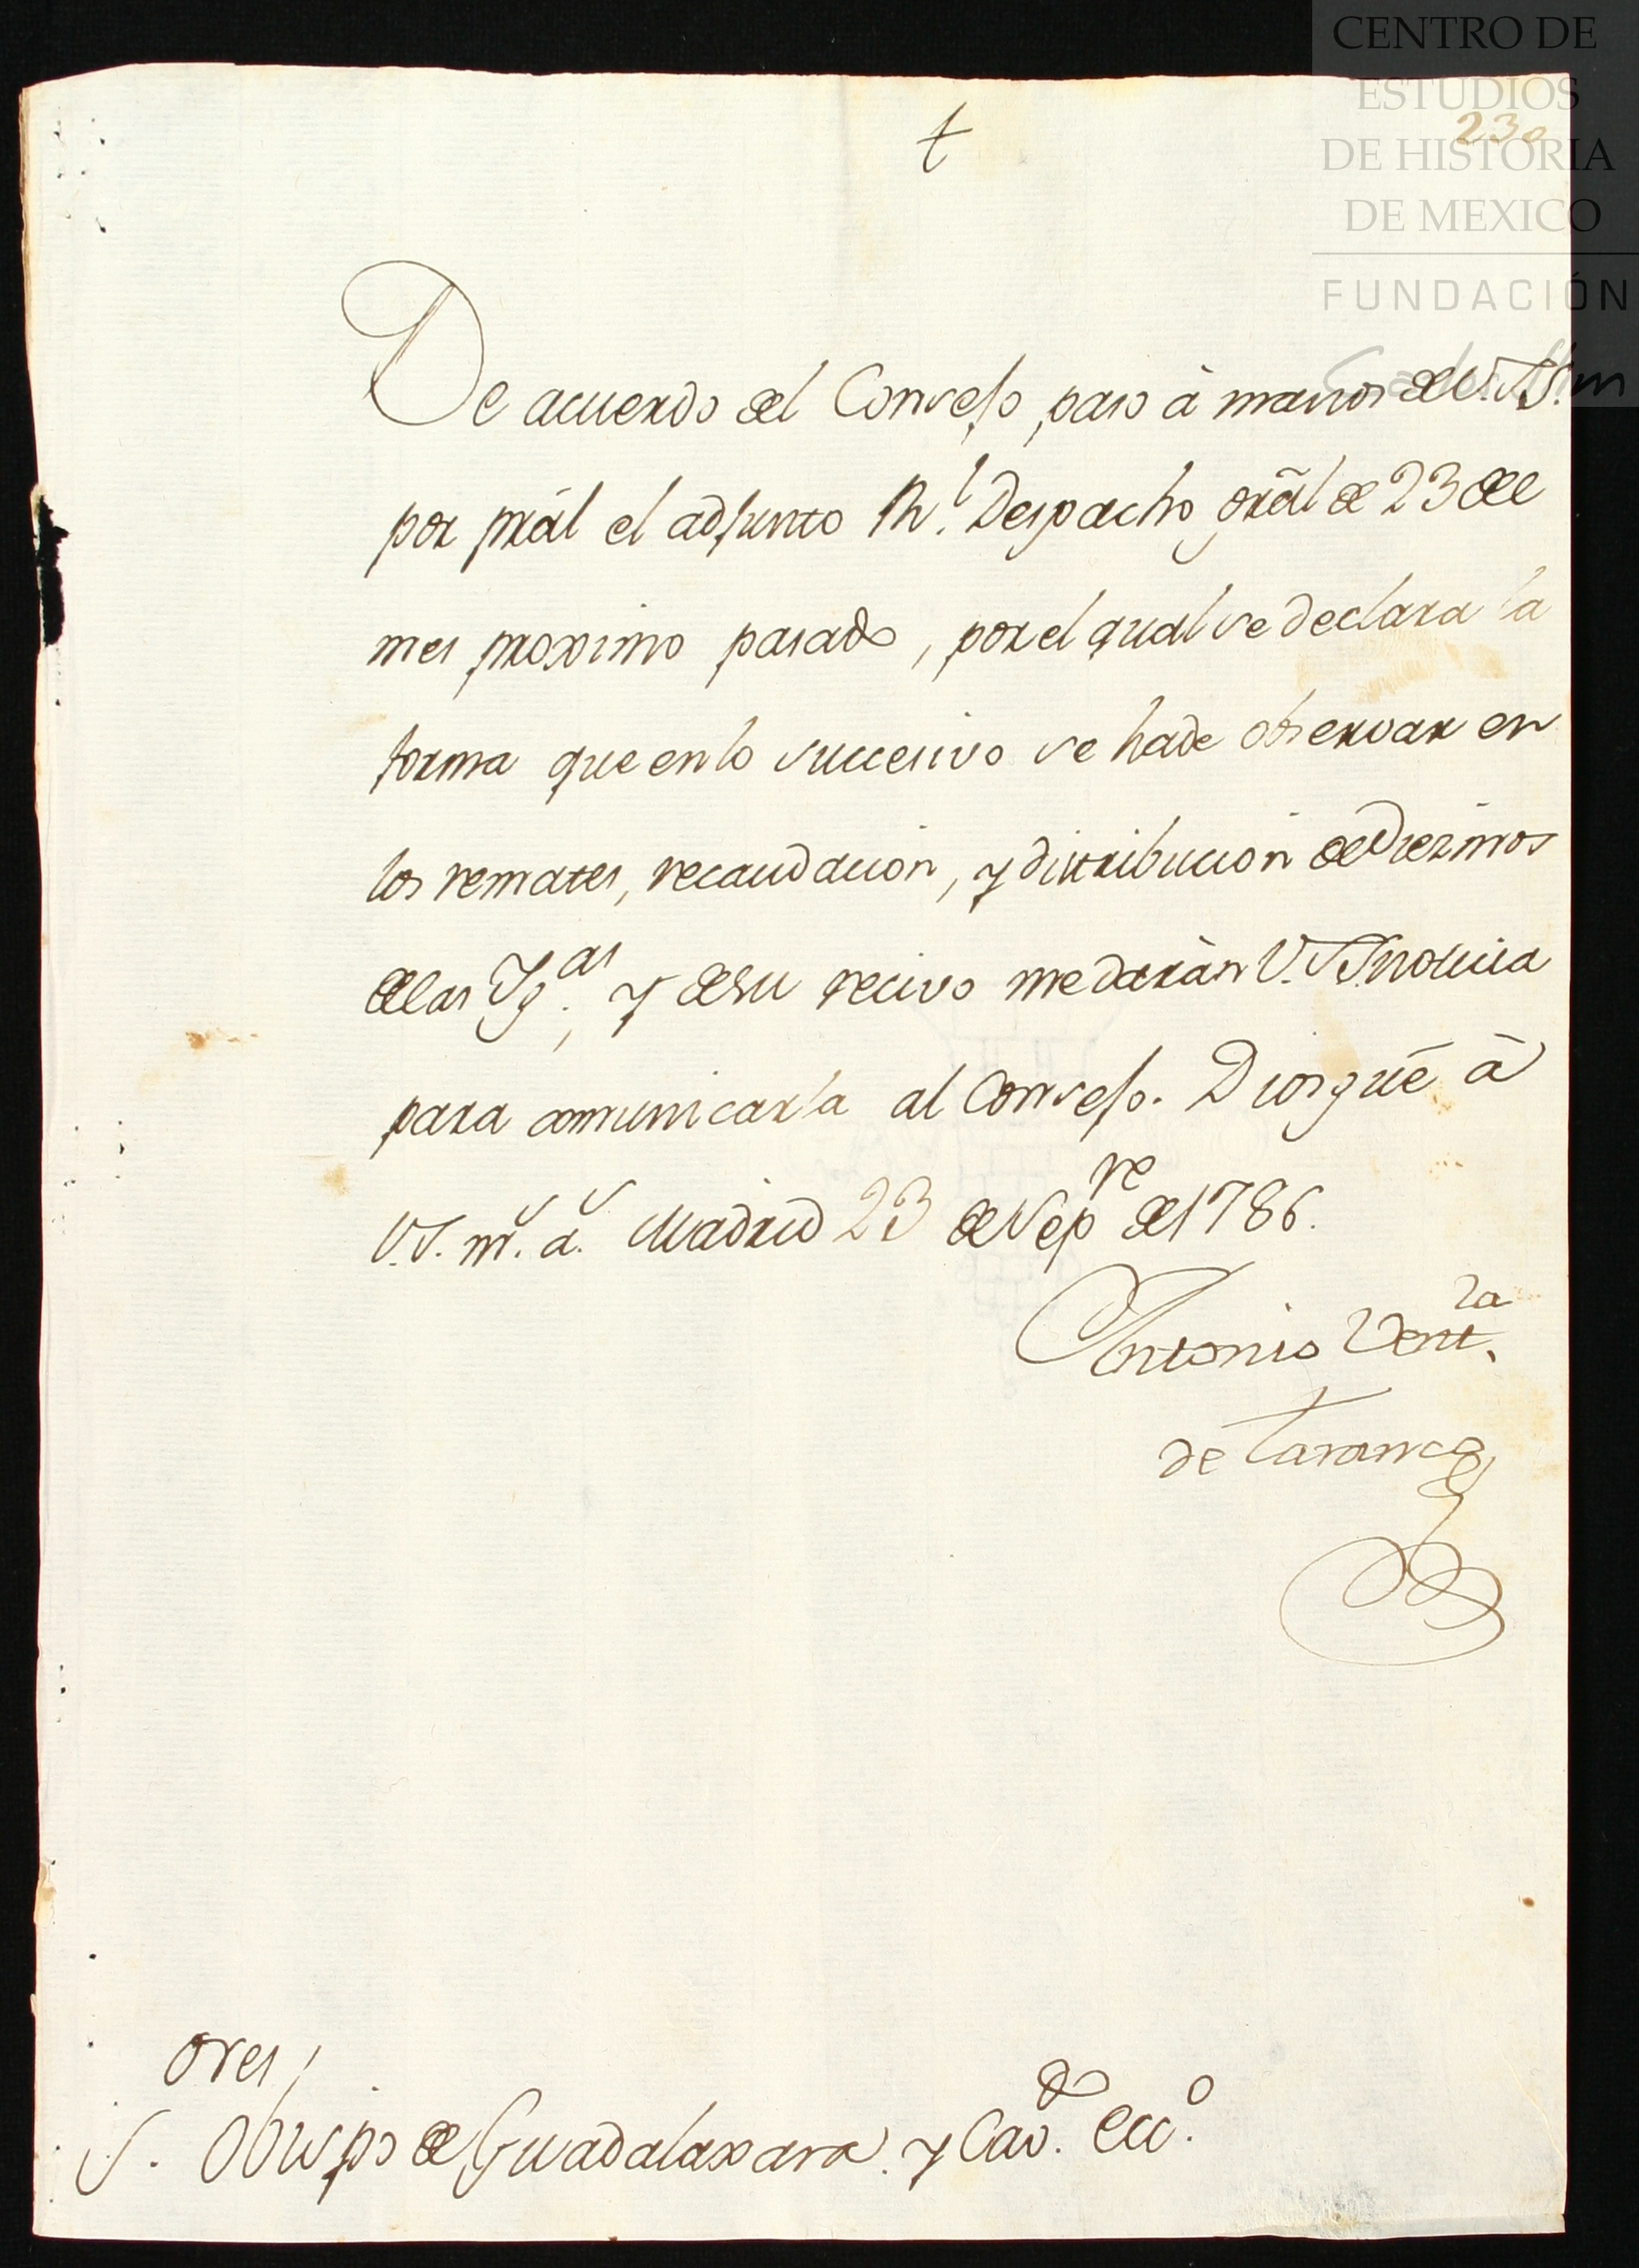 CENTRO DE
ESTUDIOS
DE HISTORIA
DE MEXICO
FUNDACIÓN
230
t
De acuerdo del Consejo, paso à manos de V.SS.
por prãl el adjunto Rl. Despacho grãl de 23 del
mes proximo pasado, por el qual se declara la
forma que en lo succesivo se hade observar en
los remates, recaudacion, y distribucion de Diezmos
de las Yg.as, y de su recivo me daràn V.SS. noticia
para comunicarla al Consejo. Dios gũe à
V.S. ms. as. Madrid 23 de Sepre de 1786.
Antonio Ventra
de Taranco
S.ores Obispo de Guadalaxara. y Cavdo. Ecco.